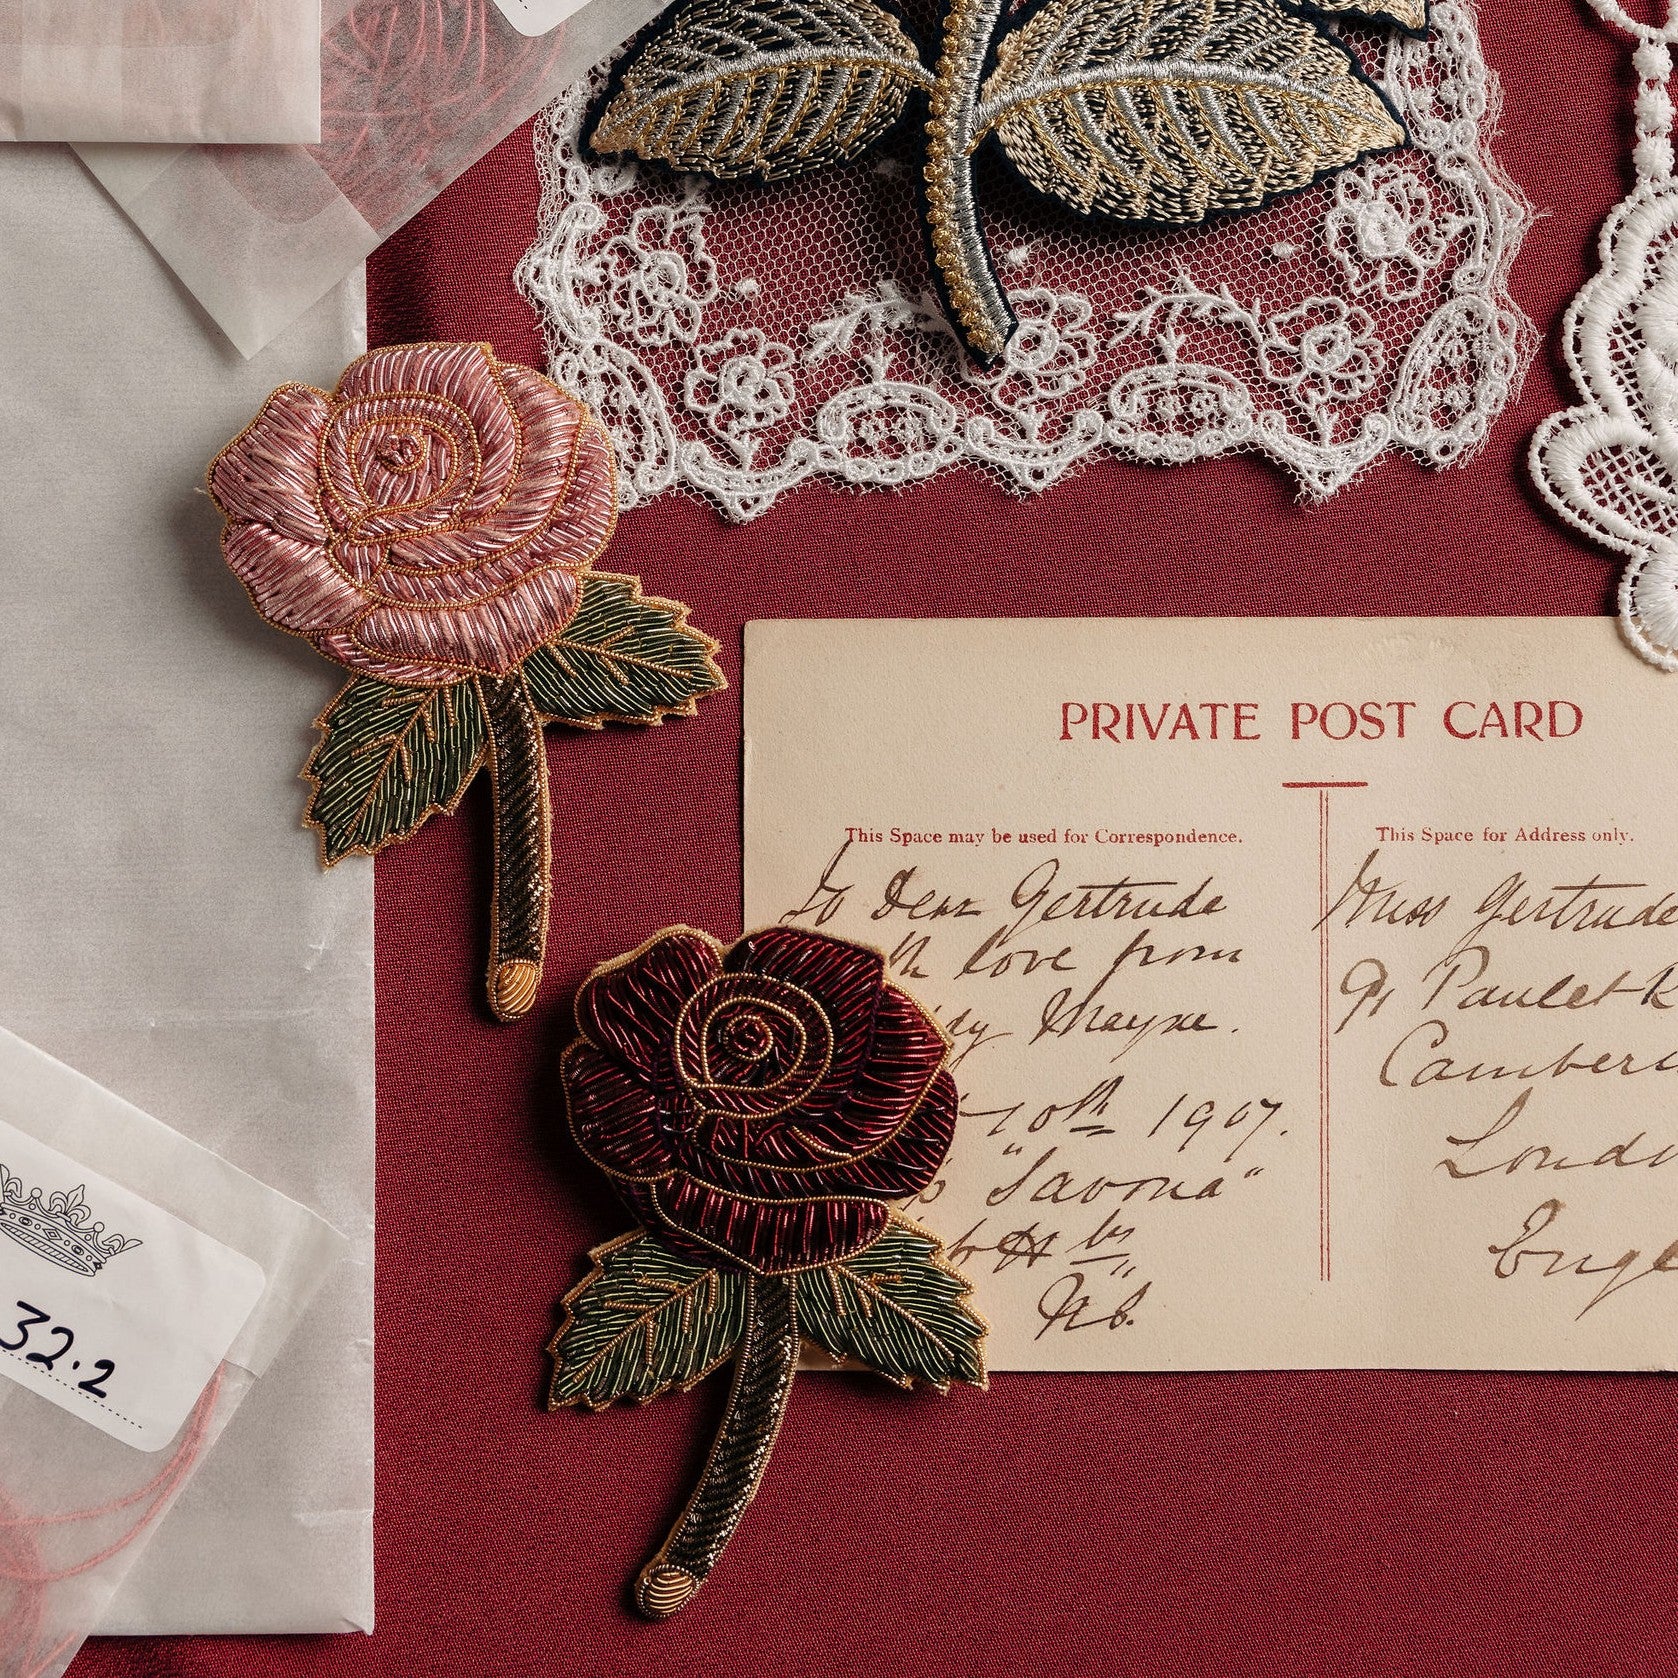 PRIVATE POST CARD
This Space may be used for Correspondence.
To Dear Gertrude
th love from
Mayne.
10th 1907.
"Savona"
N.B.
This Space for Address only.
Miss Gertrude
91 Paulet R
Camber
Londo
Engl
32.2